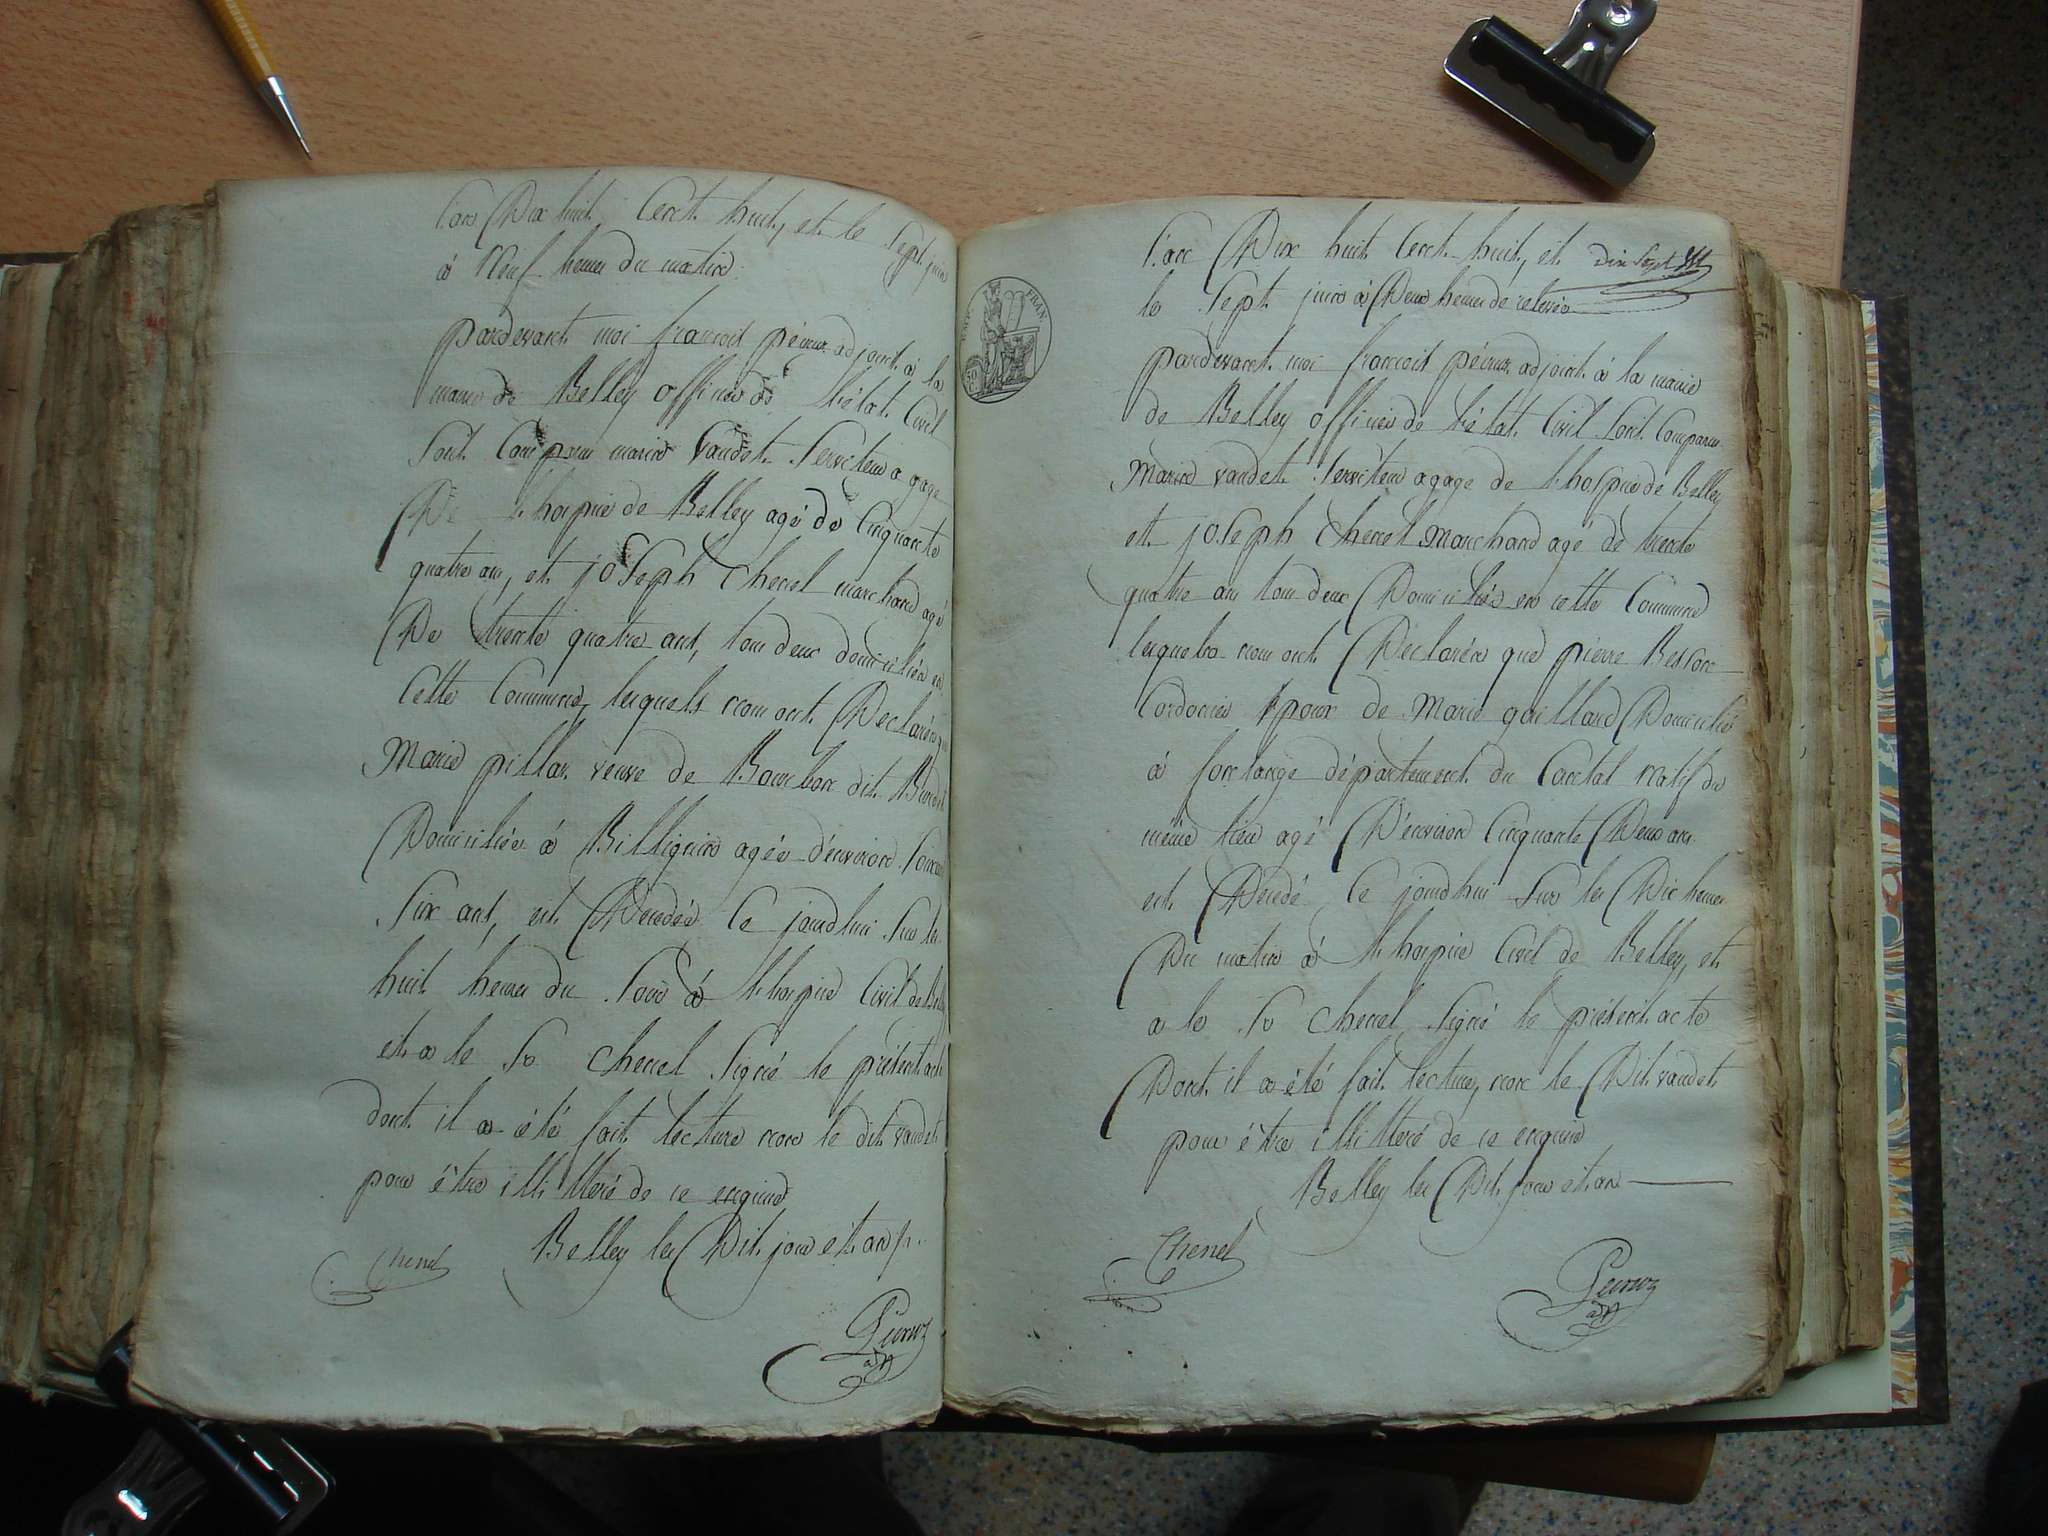 L'an Dix huit Cent huit, et le Sept juin
à Neuf heures du matin
pardevant moi françois péiruz adjoint à la
mairie de Belley officier de l'état Civil
Sont Comparus marin vaudet Serviteur a gage
De l'hospice de Belley agé de Cinquante
quatre ans, et joSeph Chenel marchand agé
De trente quatre ans, tous deux domiciliés en
Cette Commune, lesquels nous ont Déclarés que
Marie pillar veuve de Bourbon dit
Domiciliée à Billignin agée d'environ Soixante
Six ans, est Décedée Ce jourd'hui Sur les
huit heures du Soir à l'hospice Civil de Belley
et a le Sr Chenel Signé le présent acte
dont il a été fait lecture non le dit vaudet
pour être illitteré de ce enquis
Belley les Dit jour et an
Chenel
Peiruz
adj
L'an Dix huit Cent huit, et
le Sept juin à Deux heures de relevée
dix Sept
EMP. FRAN.
50
pardevant moi françois péiruz adjoint à la mairie
de Belley officier de l'état Civil Sont Comparus
Marin vaudet Serviteur a gage de l'hospice de Belley
et joSeph Chenel Marchand agé de trente
quatre ans tous deux Domiciliés en cette Commune
lesquels nous ont Déclarés que pierre Besson
Cordonier Epoux de Marie gaillard Domicilié
à département du Cantal natif du
même lieu agé D'environ Cinquante Deux ans
est Décedé Ce jourdhui Sur les Dix heures
Du matin à l'hospice Civil de Belley, et
a le Sr Chenel Signé le présent acte
Dont il a été fait lecture, non le Dit vaudet
pour être illitteré de ce enquis
Belley les Dit jour et an
Chenel
Peiruz
adj